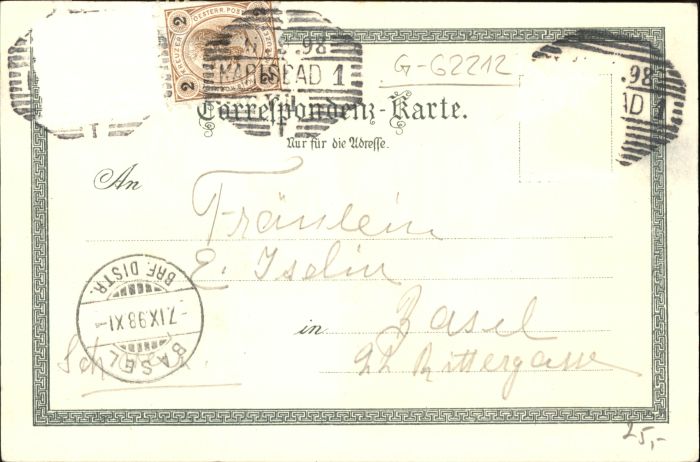 2 KREUZER OESTERR. POST 2
2
98
KARLSBAD 1
T
T
98
AD 1
G-62212
Correspondenz-Karte.
Nur für die Adresse.
An
Fräulein
E. Iselin
in Basel
22 Rittergasse
BASEL
-7.IX.98.XI-
BRF. DISTR.
25,-